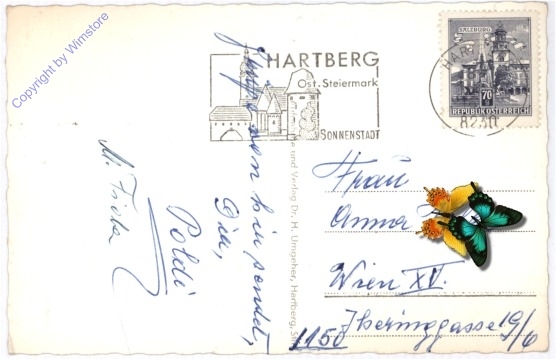 Copyright by Wimstore
HARTBERG
Ost. Steiermark
SONNENSTADT
SALZBURG
70
REPUBLIK ÖSTERREICH
8230
von hier sendet
Dir,
Poldi
und Verlag Dr. H. Umgeher, Hartberg, St
Frau
Anna
Wien XV.
1150
19/6